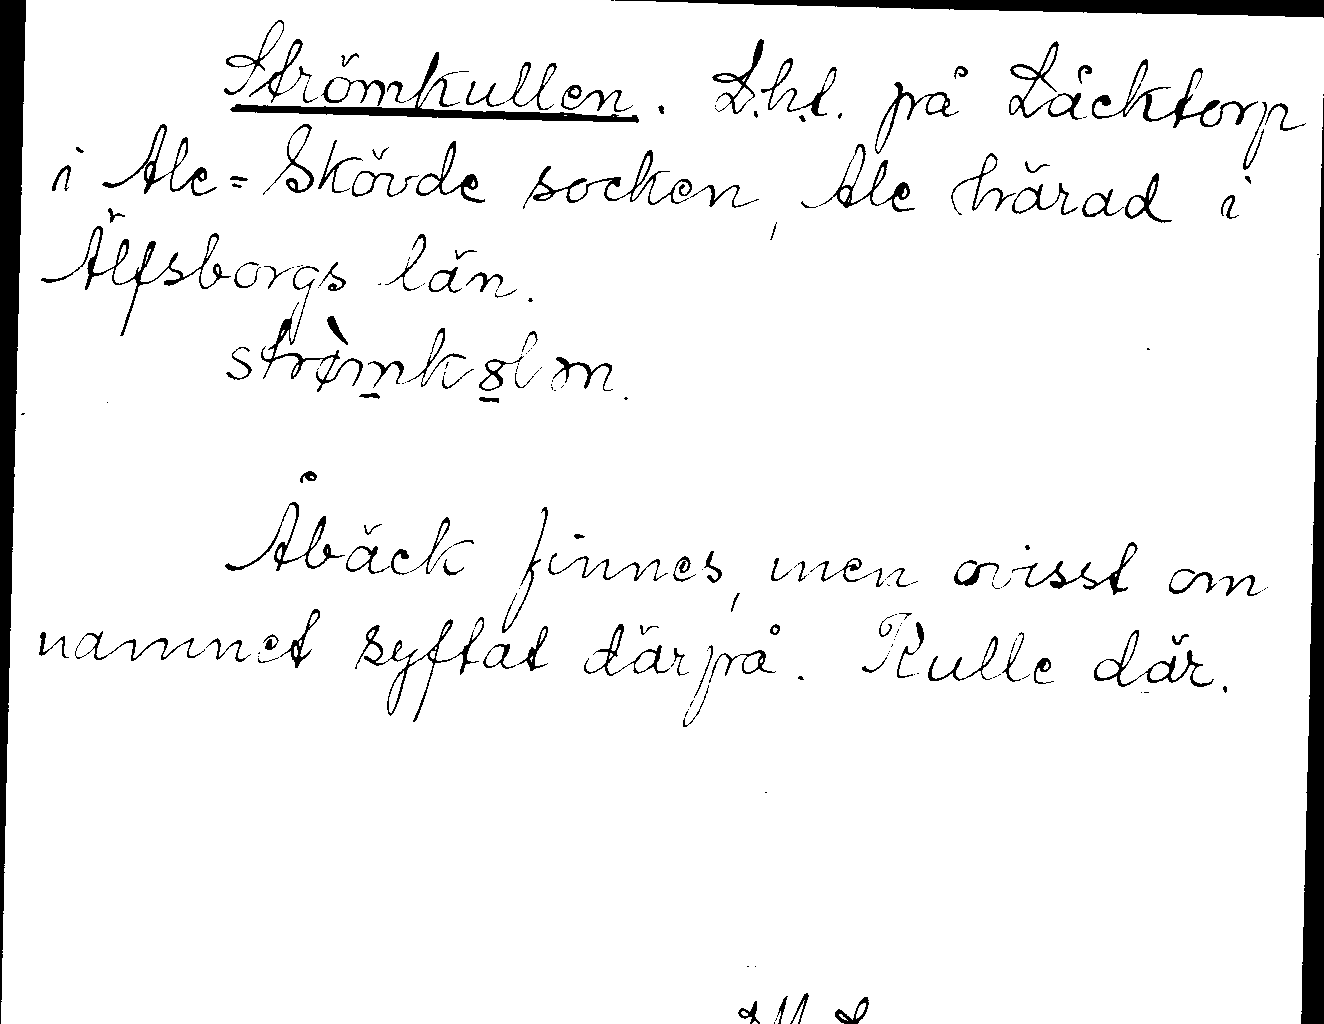 Strömkullen. L.h.t. på Läcktorp
i Ale=Skövde socken, Ale härad i
Älfsborgs län.
strø̀mkȣlm.
Åbäck finnes, men ovisst om
namnet syftat därpå. Kulle där.